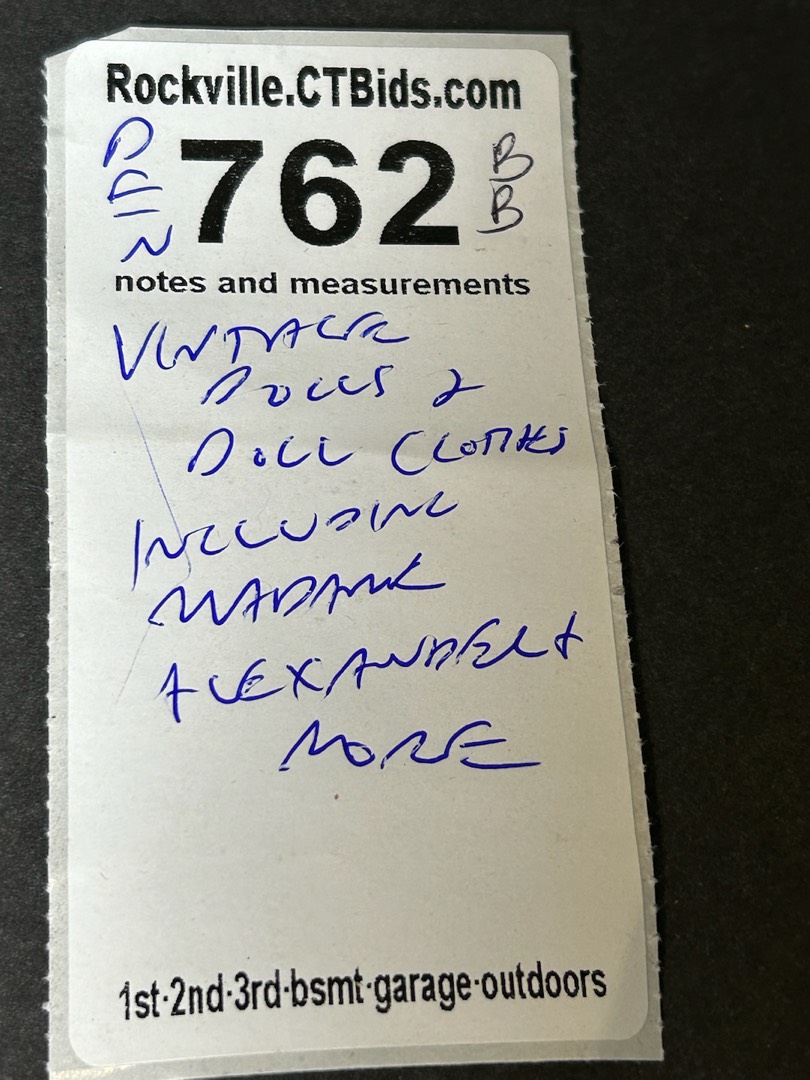 Rockville.CTBids.com
DEN 762 BB
notes and measurements
VINTAGE
DOLLS &
DOLL CLOTHES
INCLUDING
MADAME
ALEXANDER &
MORE
1st·2nd·3rd·bsmt·garage·outdoors